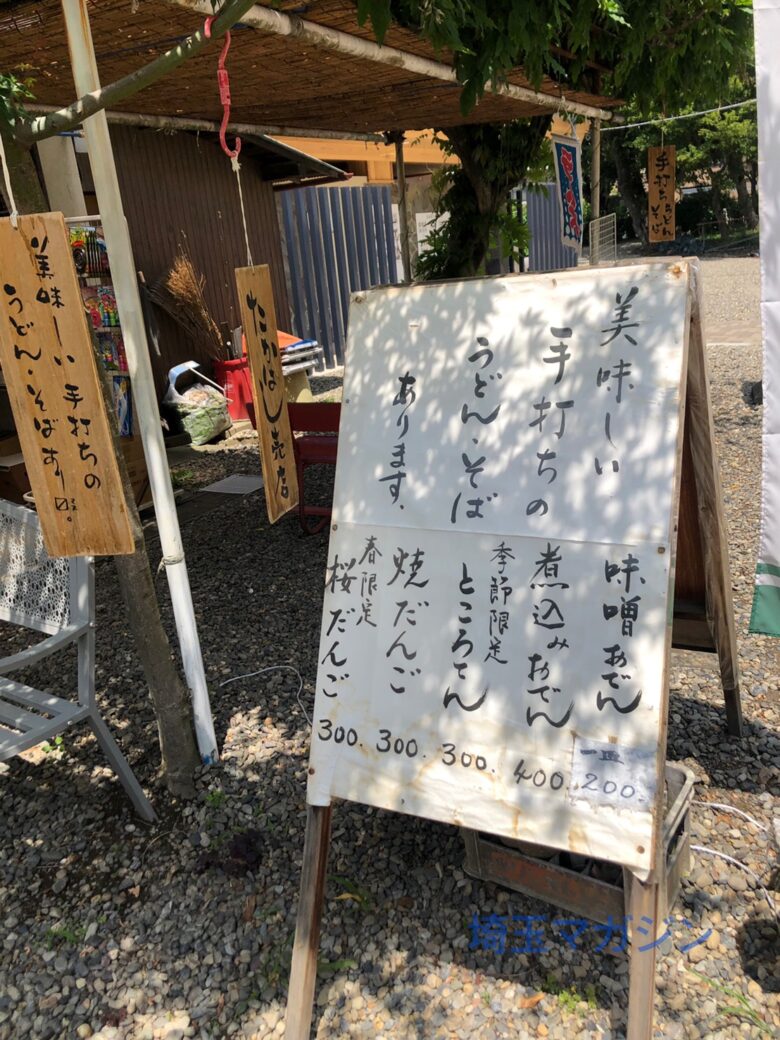 美味しい
手打ちの
うどん・そば
あります。
味噌おでん
一皿
200.
煮込みおでん
400.
季節限定
ところてん
300.
焼だんご
300.
春限定
桜だんご
300.
美味しい手打ちの
うどん・そばあり〼。
たかはし売店
手打うどん
そば
埼玉マガジン